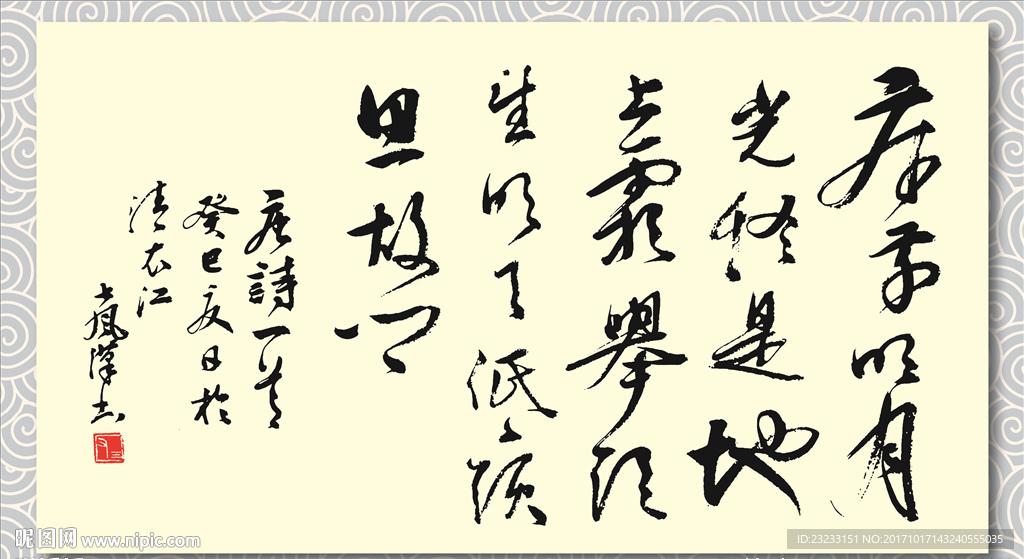 床前明月
光疑是地
上霜舉頭
望明月低頭
思故鄉
唐詩一首
癸巳夏日於
清衣江
昵图网 www.nipic.com
ID:23233151 NO:20171017143240555035